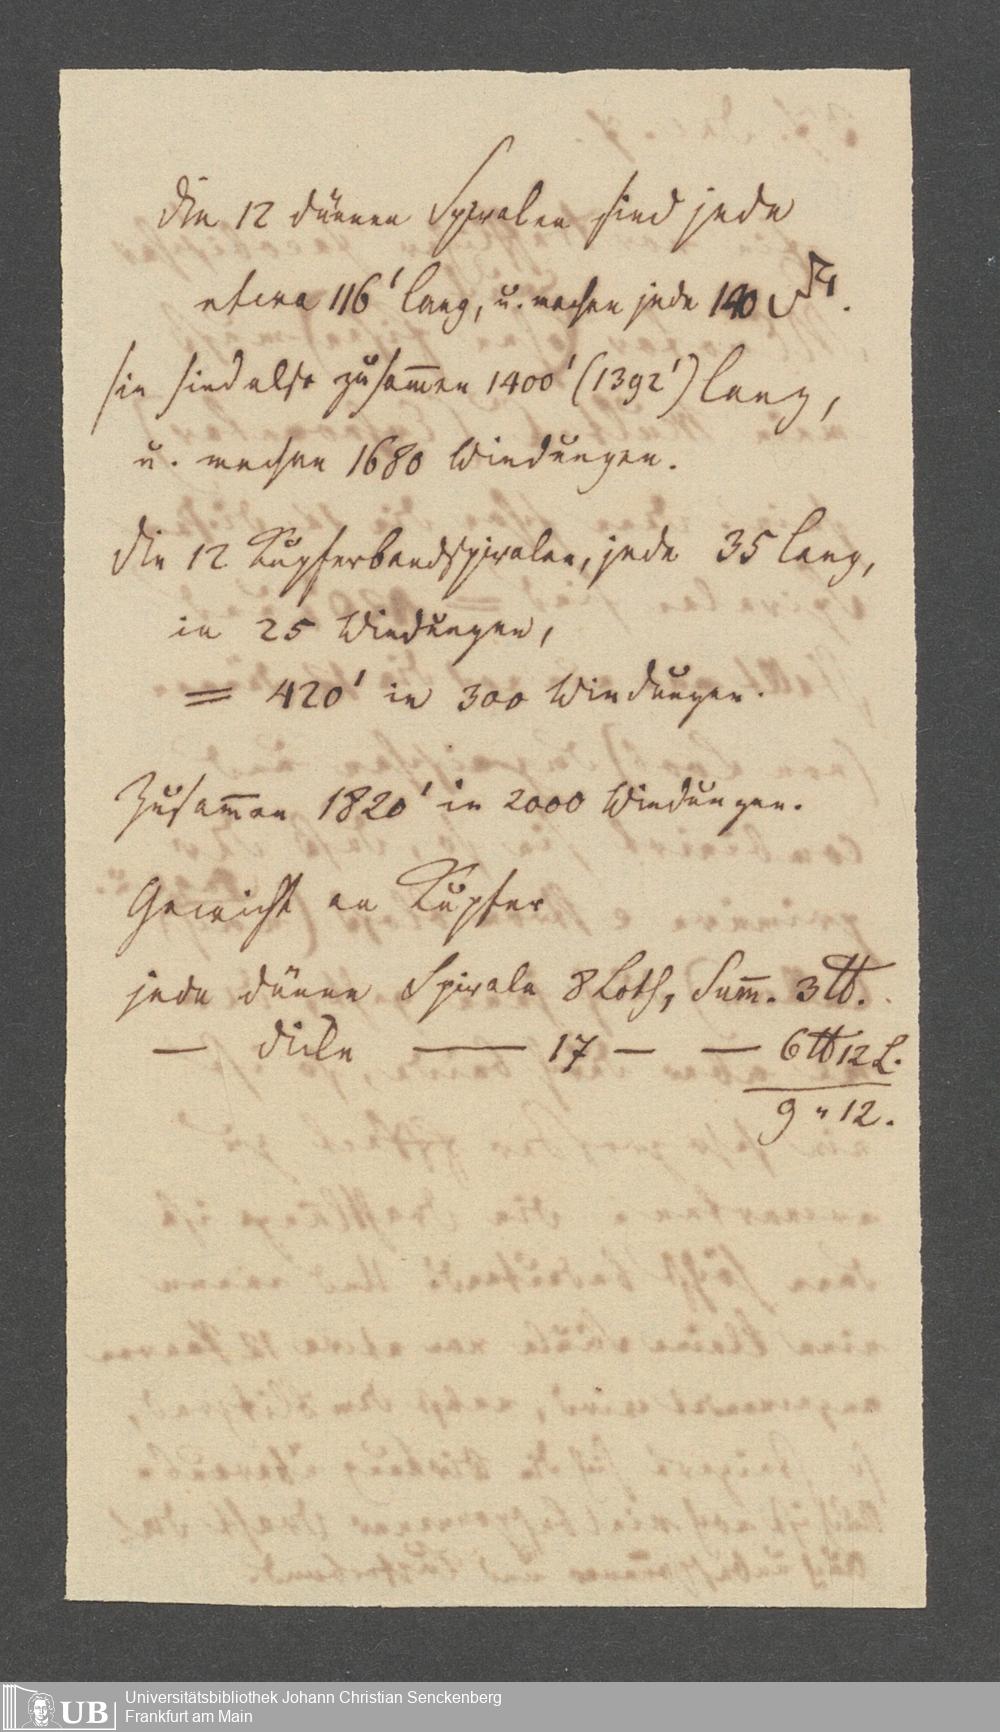 Die 12 dünnen Spiralen sind jede
etwa 116' lang, u. machen jede 140
sie sind also zusammen 1400' (1392') lang,
u. machen 1680 Windungen.
Die 12 Kupferbandspiralen, jede 35 lang,
in 25 Windungen,
= 420' in 300 Windungen.
Zusammen 1820' in 2000 Windungen.
Gewicht an Kupfer
jede dünne Spirale 8 Loth, Sum̅. 3 ℔.
— dicke — 17 — — 6 ℔ 12 L.
9 " 12.
UB
Universitätsbibliothek Johann Christian Senckenberg
Frankfurt am Main